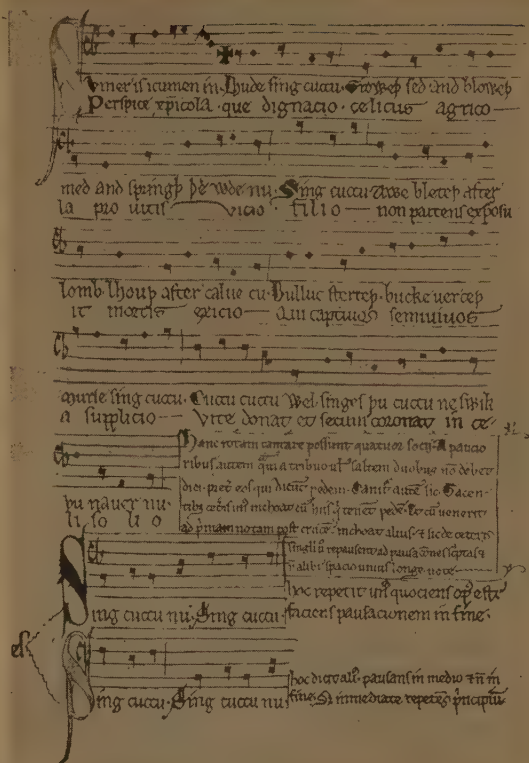 Svmer is icumen in. Lhude sing cuccu. Groweþ sed and bloweþ
Perspice xpicola. que dignacio. celicus agrico
med and springþ þe wde nu. Sing cuccu Awe bleteþ after
la pro uitis vicio filio non parcens exposu
lomb. lhouþ after calue cu. Bulluc sterteþ. bucke uerteþ
it mortis exicio Qui captiuos semiuiuos
murie sing cuccu. Cuccu cuccu Wel singes þu cuccu ne swik
a supplicio Vite donat et secum coronat in ce
þu nauer nu.
li solio
Hanc rotam cantare possunt quatuor socii. A paucio
ribus autem a tribus saltem duobus debet
dici. pret eos qui dicunt pedem. Canit autem sic. Tacen
tibus ceteris unus inchoat cum tenent pedem. Et cum uenerit
ad primam notam post crucem. inchoat alius. sic de ceteris
singuli repausent ad pausaciones scriptas
alibi spacio unius longe note.
Sing cuccu nu. Sing cuccu.
hoc repetit un quociens opus est
faciens pausacionem in fine.
Sing cuccu. Sing cuccu nu
hoc dicit alius. pausans in medio in
fine. Set immediate repetens principium